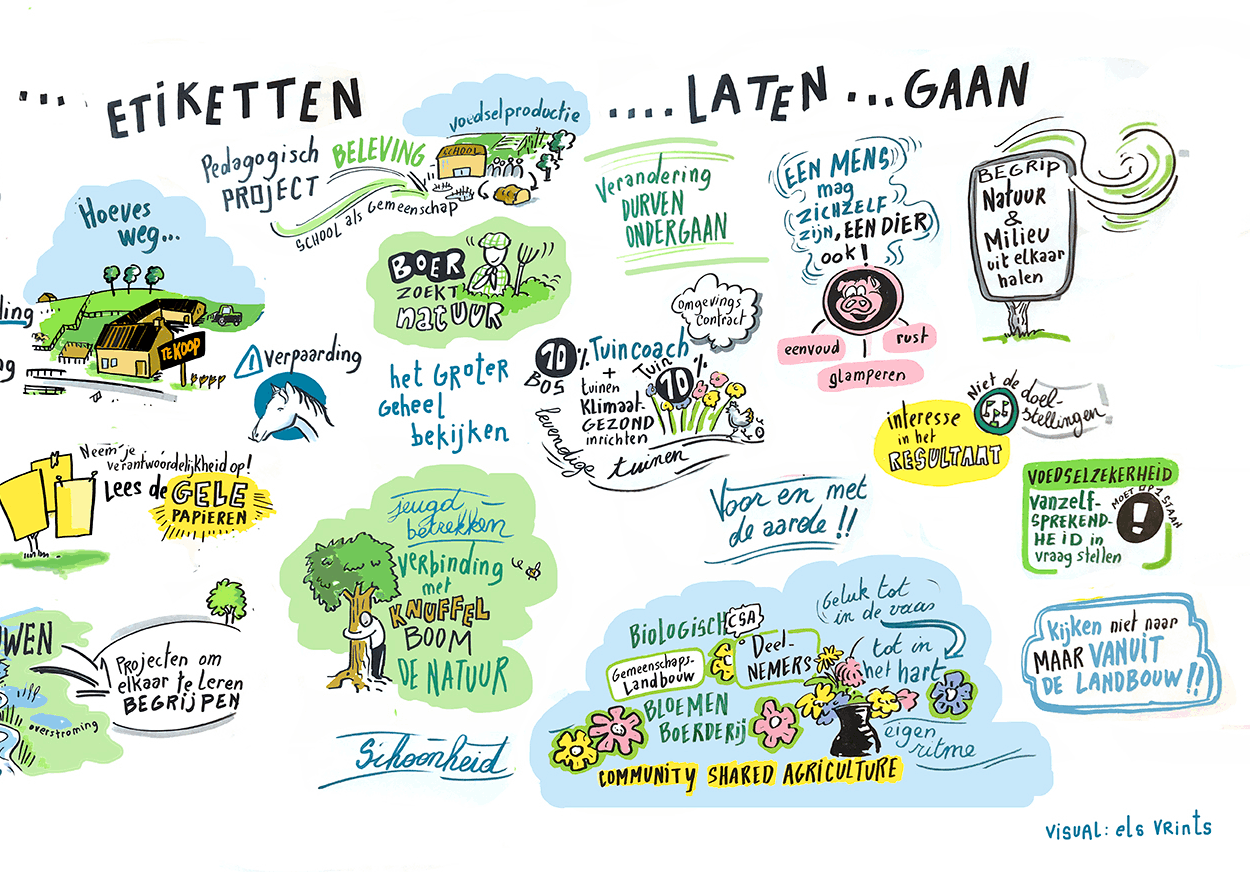 ... ETIKETTEN .... LATEN ... GAAN
Pedagogisch
PROJECT
BELEVING
SCHOOL als Gemeenschap
voedselproductie
SCHOOL
Hoeves
weg...
TE KOOP
ling
ag
BOER
ZOEKT
natUUR
verpaarding
het GROTER
GEHEEL
bekijken
Verandering
DURVEN
ONDERGAAN
EEN MENS
mag
ZICHZELF
zijn, EEN DIER
ook!
eenvoud
rust
glamperen
BEGRIP
Natuur
&
Milieu
uit elkaar
halen
omgevings
contract
10%
BOS
Tuincoach
+
tuinen
Klimaat-
GEZOND
inrichten
Tuin
10%
levendige
tuinen
interesse
in het
RESULTAAT
Niet de doel-
stellingen!
Neem je
verantwoordelijkheid op!
Lees de GELE
PAPIEREN
jeugd
betrekken
verbinding
met
KNUFFEL
BOOM
DE NATUUR
Voor en met
de aarde !!
VOEDSELZEKERHEID
vanzelf-
SPREKEND-
HEID in
vraag stellen
MOET OP 1 STAAN
!
UWEN
overstroming
Projecten om
elkaar te leren
BEGRIJPEN
Schoonheid
BIOLOGISCH
CSA
Gemeenschaps-
Landbouw
° Deel-
NEMERS
BLOEMEN
BOERDERIJ
Geluk tot
in de vaas
tot in
het hart
eigen
ritme
COMMUNITY SHARED AGRICULTURE
Kijken niet naar
MAAR VANUIT
DE LANDBOUW !!
VISUAL: els VRints